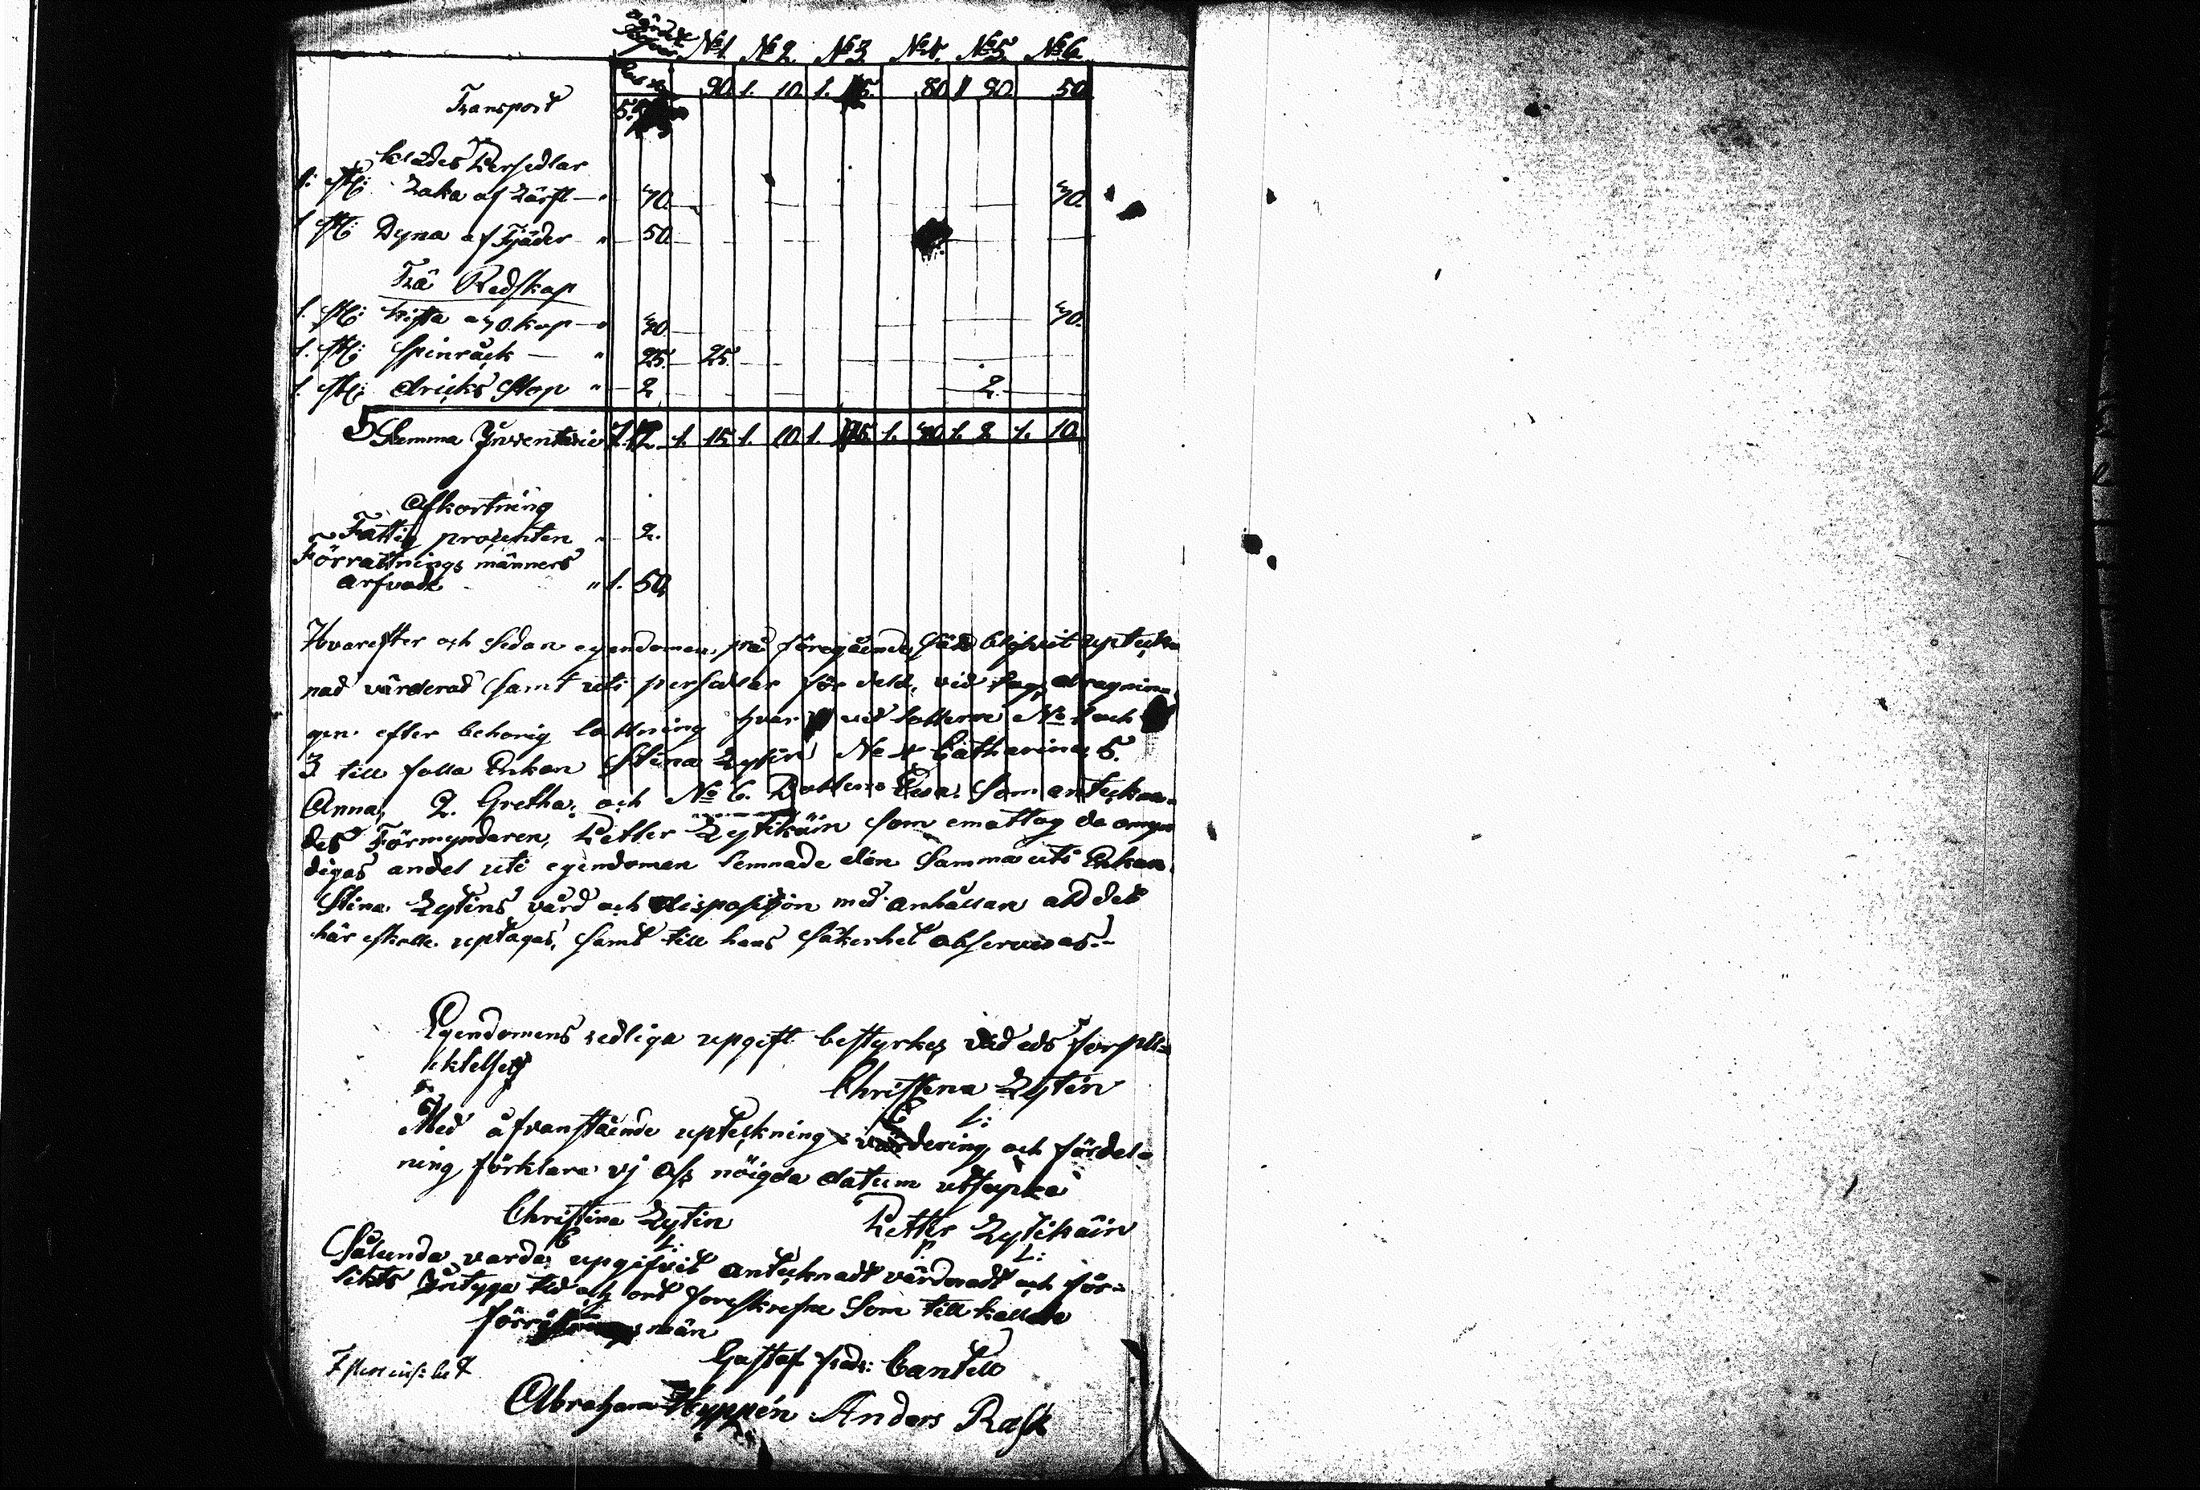 No 1. No 2. No 3. No 4. No 5. No 6.
Transport 90. 1. 10. 1. 15. 80. 90. 50.
Klädes Persedlar
1. St: af 70. 70.
1. St: Dyna af Fjäder " 50.
Trä Redskap
1. St: kista a 70. kap 70. 70.
1. St: Spinråck " 25. 25.
1. St: dricks Stop " 2. 2.
Summa Inventarie 1. 15. 1. 10. 1. 15. 1. 1. 2. 1. 10.
Afkortning
Fattig procenten " 2.
Förrättnings männers
arfvode " 1. 50.
Hvarefter och Sedan egendomen, på föregående sätt blifvit upteck
nad värderad samt uti persedlar för deld, vid
gen efter behorig lottning hvar vid lotterne No 1 och
3 till falla Enkan Stina Lytin No 4. Catharina, 5.
Anna, 2. Gretha, och No 6. Dottern Eva. Som anteckna-
des Förmyndaren, Petter Lytikäin som emottog de omyn
digas andel uti egendomen lemnade den Samma uti Enkan
Stina Lytins vård och disposition med anhållan att det
här skulle uptagas, samt till hans säkerhet observeras.-
Egendomens redliga upgift bestyrkes vid eds förpli-
cktelse
Christina Lytin
L:
Med åfvanstående upteckning värdering och fördel-
ning förklara vj oss nöigda datum utsupra
Christina Lytin Petter Lytikäin
L: P. L:
Sålunda varda upgifvit antecknadt värderadt och för-
intyga tid och ort foreskrefne Som till kallade
män
Gustaf Fredr: Cantell
Abraham Hyppén Anders Rask